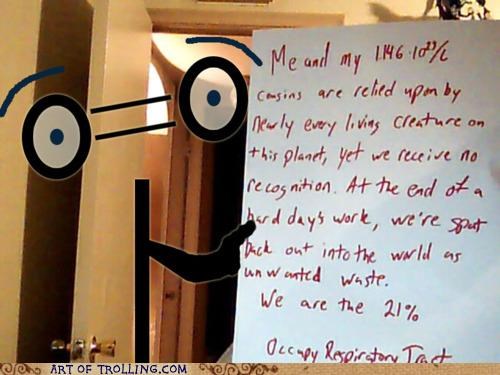 Me and my 1.146·10²³/L
cousins are relied upon by
nearly every living creature on
this planet, yet we receive no
recognition. At the end of a
hard day's work, we're spat
back out into the world as
unwanted waste.
We are the 21%
Occupy Respiratory Tract
ART OF TROLLING.COM